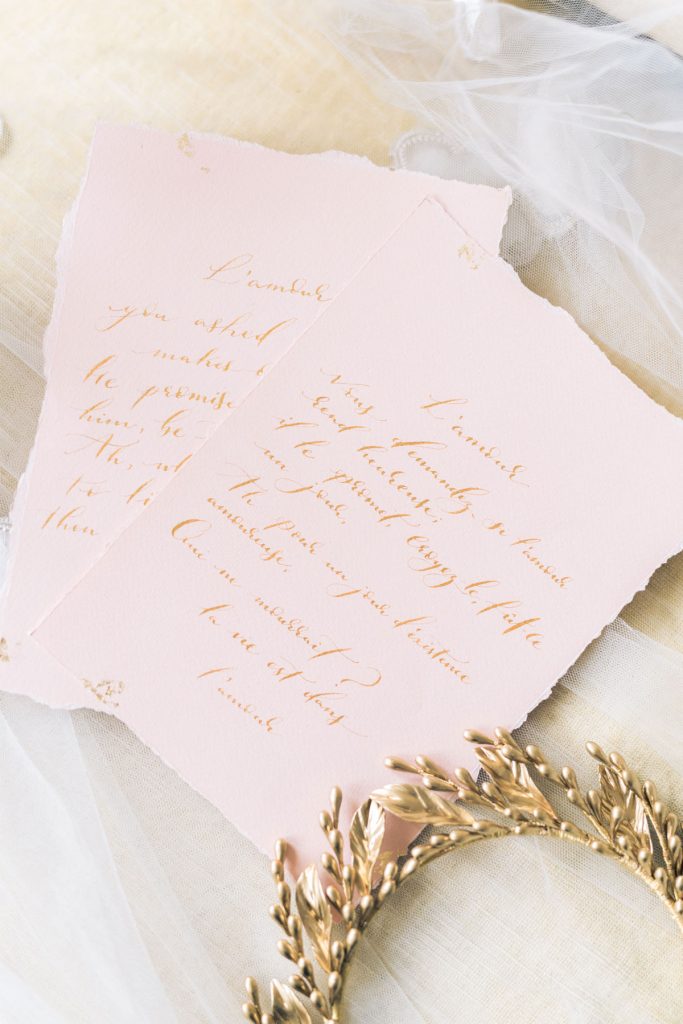 L'amour
you asked
makes
he promise
him, be
Ah,
to li
L'amour
Vous demandez si l'amour
rend heureuse;
il le promet, croyez-le, fût-ce
un jour,
Ah pour un jour d'existence
amoureuse,
Qui ne mourrait ?
la vie est dans
l'amour